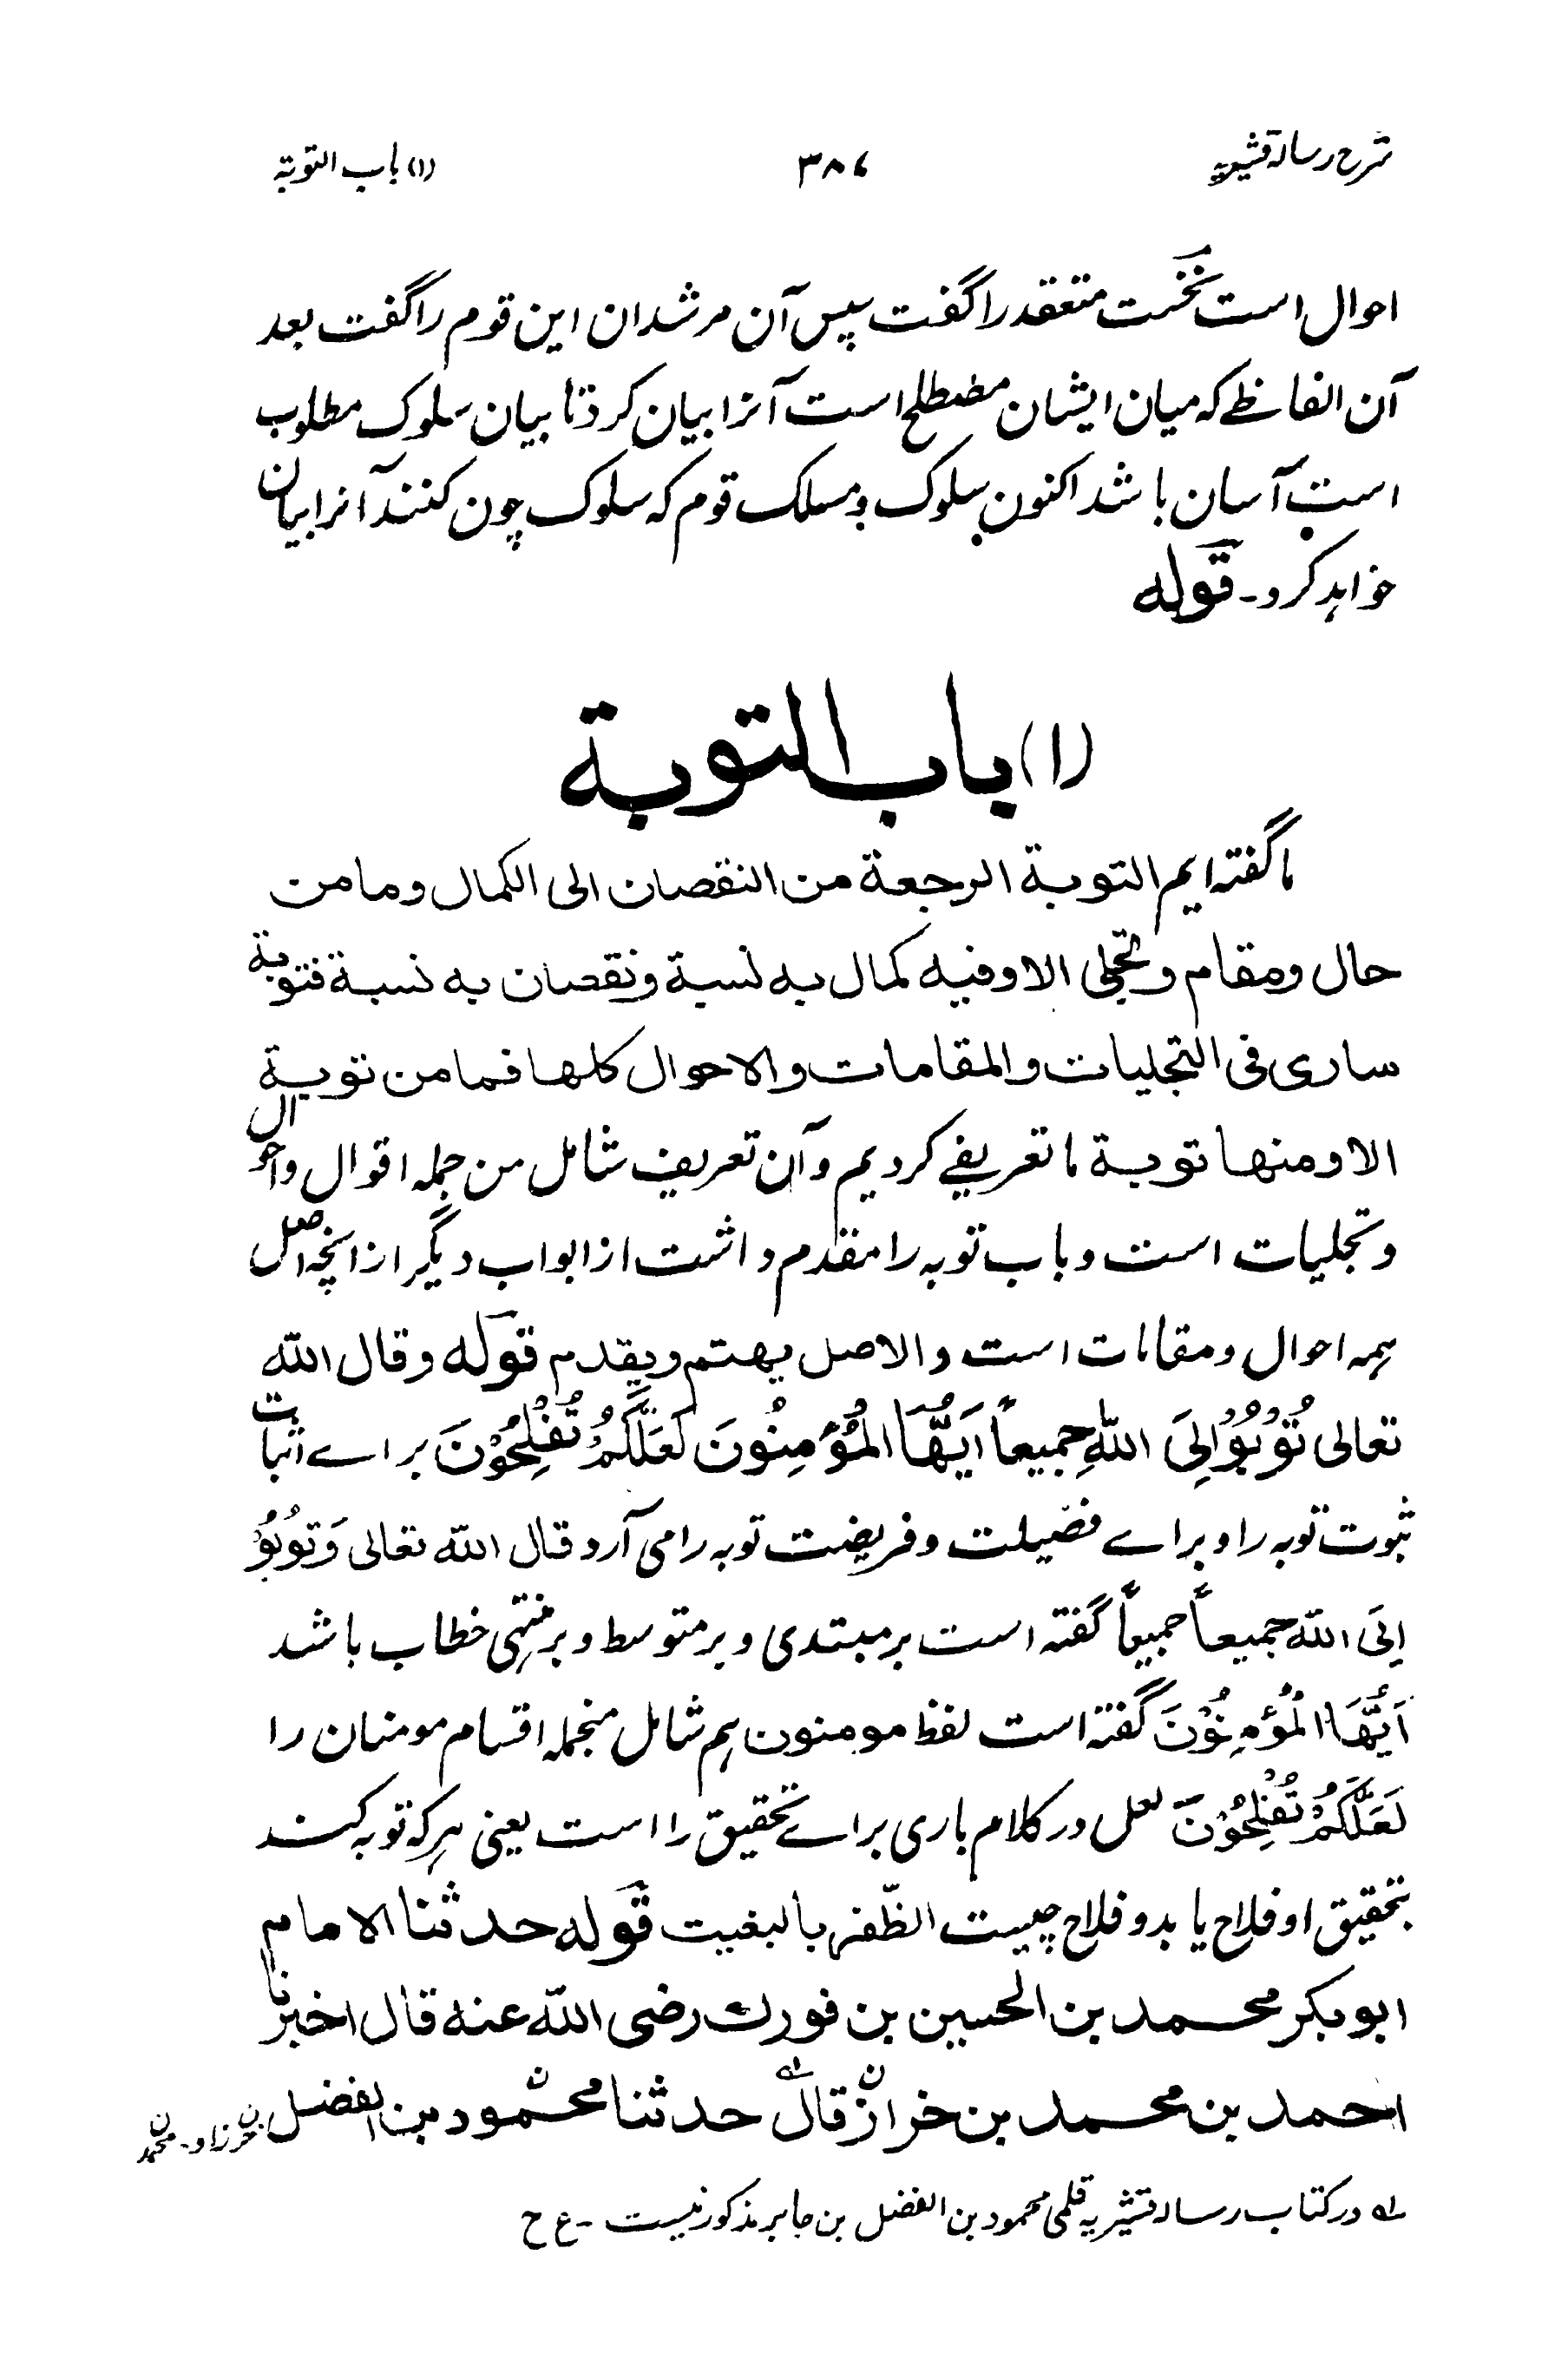 شرح رسالہ قشیریہ ۳۸۷ (۱) باب التوبۃ
احوال است نخست متعقد را گفت سپس آن مرشدان این قوم را گفت بعد
آن الفاظے که میان ایشان مضطلح است آنرا بیان کرد تا بیان سلوک مطلوب
است آسان باشد اکنون بسلوک و مسلک قوم که سلوک چون کنند آنرا بیان
خواہد کرد۔ قوله
(۱) باب التوبة
ما گفتہ ایم التوبة الرجعة من النقصان الی الکمال وما من
حال ومقام وتجلی الا وفیه کمال به نسبة ونقصان به نسبة فتوبة
ساری فی التجلیات والمقامات والاحوال کلها فما من توبة
الا ومنها توبة ما تعریفے کردیم و آن تعریف شامل من جملہ اقوال واحوال
و تجلیات است و باب توبہ را مقدم داشت از ابواب دیگر از انچہ اصل
ہمہ احوال و مقامات است والاصل یهتم ویقدم قوله وقال الله
تعالی تُوْبُوْا اِلِیَ اللّٰهِ جمیعاً اَیُّهَا المُؤْمِنُونَ لَعَلَّکُمْ تُفْلِحُوْنَ براے اثبات
ثبوت توبہ را و براے فضیلت و فریضت توبہ را می آرد قال الله تعالی وَتوُبُوْ
اِلیَ الله جمیعاً جمیعاً گفتہ است بر مبتدی و بر متوسط و بر منتہی خطاب باشد
اَیُّهَا الْمُؤمِنُوْنَ گفتہ است لفظ مومنون ہم شامل منجملہ اقسام مومنان را
لَعَلَّکُمْ تُفْلِحُوْنَ لعل در کلام باری براے تحقیق را است یعنی ہر کہ توبہ کند
بتحقیق او فلاح یابد و فلاح چیست الظّفر بالبغیت قوله حدثنا الامام
ابوبکر محمد بن الحسین بن فورك رضی الله عنه قال اخبرنا
احمد بن محمد بن خرازن قال له حدثنا محمود ن بن الفضل ن خرزاد۔ ن محمد
له در کتاب رسالہ قشیریہ قلمی محمود بن الفضل بن جابر مذکور نیست ۔ ع ح